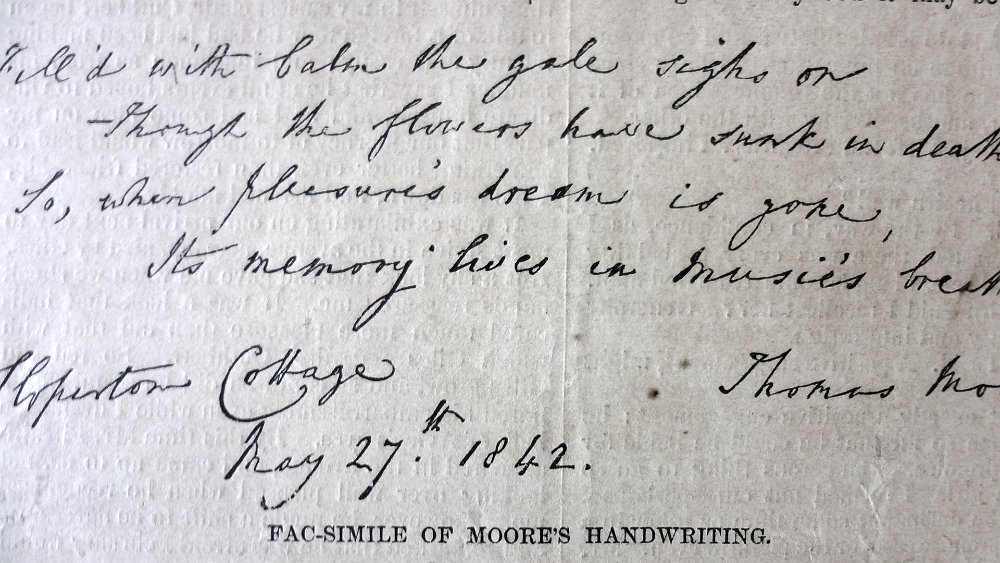 Fill'd with balm the gale sighs on
Though the flowers have sunk in death
So, when pleasure's dream is gone,
Its memory lives in Music's breath
Sloperton Cottage
Thomas Mo
May 27.th 1842.
FAC-SIMILE OF MOORE'S HANDWRITING.